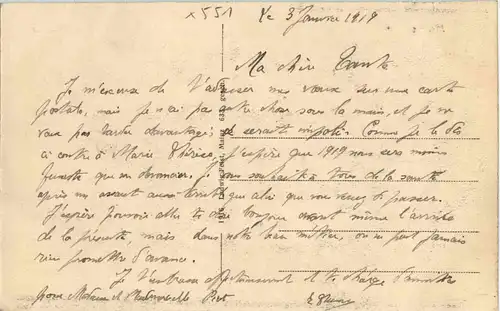 x551
le 3 Janvier 1919
Ma chère Tante
Je m'excuse de t'adresser mes vœux sur une carte
postale, mais je n'ai pas autre chose sous la main, et je ne
veux pas tarder davantage; ce serait impoli. Comme je le dis
ci contre à Marie Thérèse, j'espère que 1919 nous sera moins
funeste que sa devancière. Je vous souhaite à tous de la santé
après un assaut aussi que celui que vous venez de passer.
J'espère pouvoir aller te dire bonjour avant même l'arrivée
de la présente, mais dans notre beau métier, on ne peut jamais
rien promettre d'avance.
Je t'embrasse affectueusement et te charge d'amitiés
pour Madame et Mademoiselle